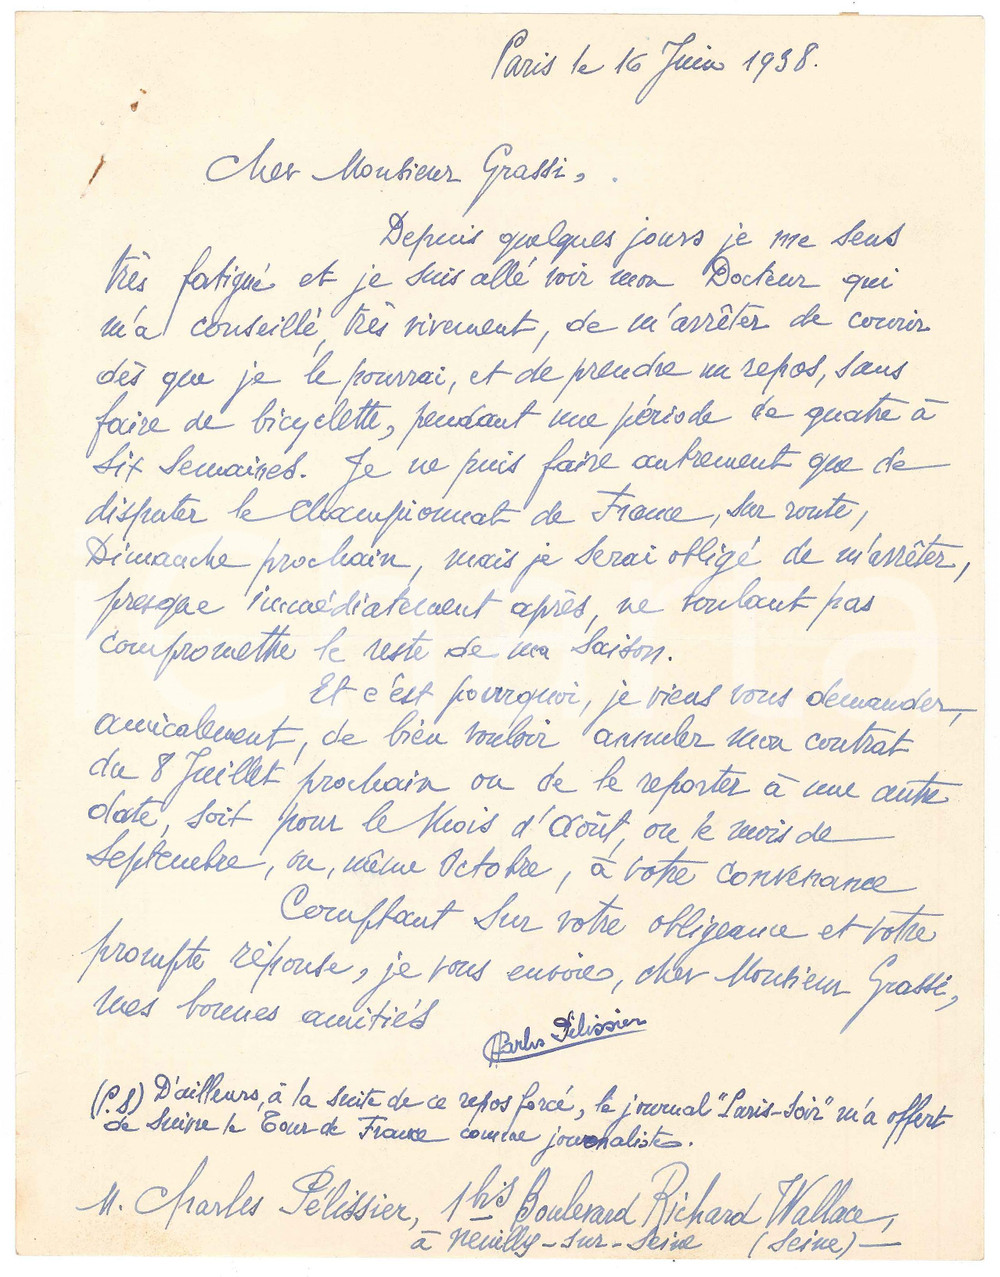 Paris le 16 Juin 1938.
Cher Monsieur Grassi,
Depuis quelques jours je me sens
très fatigué et je suis allé voir mon Docteur qui
m'a conseillé, très vivement, de m'arrêter de courir
dès que je le pourrai, et de prendre un repos, sans
faire de bicyclette, pendant une période de quatre à
six semaines. Je ne puis faire autrement que de
disputer le Championnat de France, sur route,
Dimanche prochain, mais je serai obligé de m'arrêter,
presque immédiatement après, ne voulant pas
compromettre le reste de ma saison.
Et c'est pourquoi, je viens vous demander,
amicalement, de bien vouloir annuler mon contrat
du 8 Juillet prochain ou de le reporter à une autre
date, soit pour le Mois d'Août, ou le mois de
Septembre, ou, même Octobre, à votre convenance
Comptant sur votre obligeance et votre
prompte réponse, je vous envoie, cher Monsieur Grassi,
mes bonnes amitiés
Charles Pélissier
(P.S) D'ailleurs, à la suite de ce repos forcé, le journal "Paris-Soir" m'a offert
de suivre le Tour de France comme journaliste.
M. Charles Pélissier, 1 bis Boulevard Richard Wallace,
à Neuilly-sur-Seine (Seine)